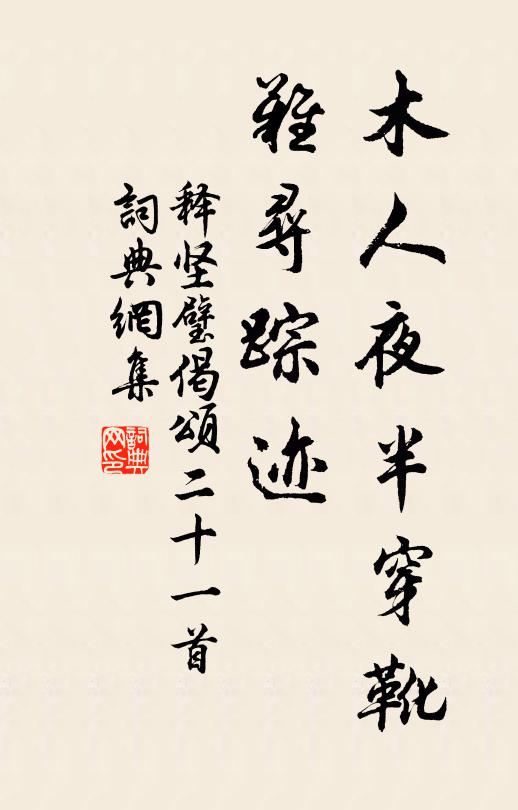 木人夜半穿靴
難尋踪迹
释坚璧偈頌二十一首
詞典網集
詞典
网印